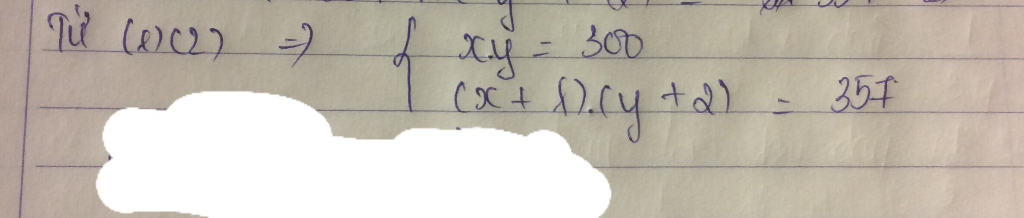 Từ (1)(2) => { x.y = 300
(x + 1).(y + 2) = 357